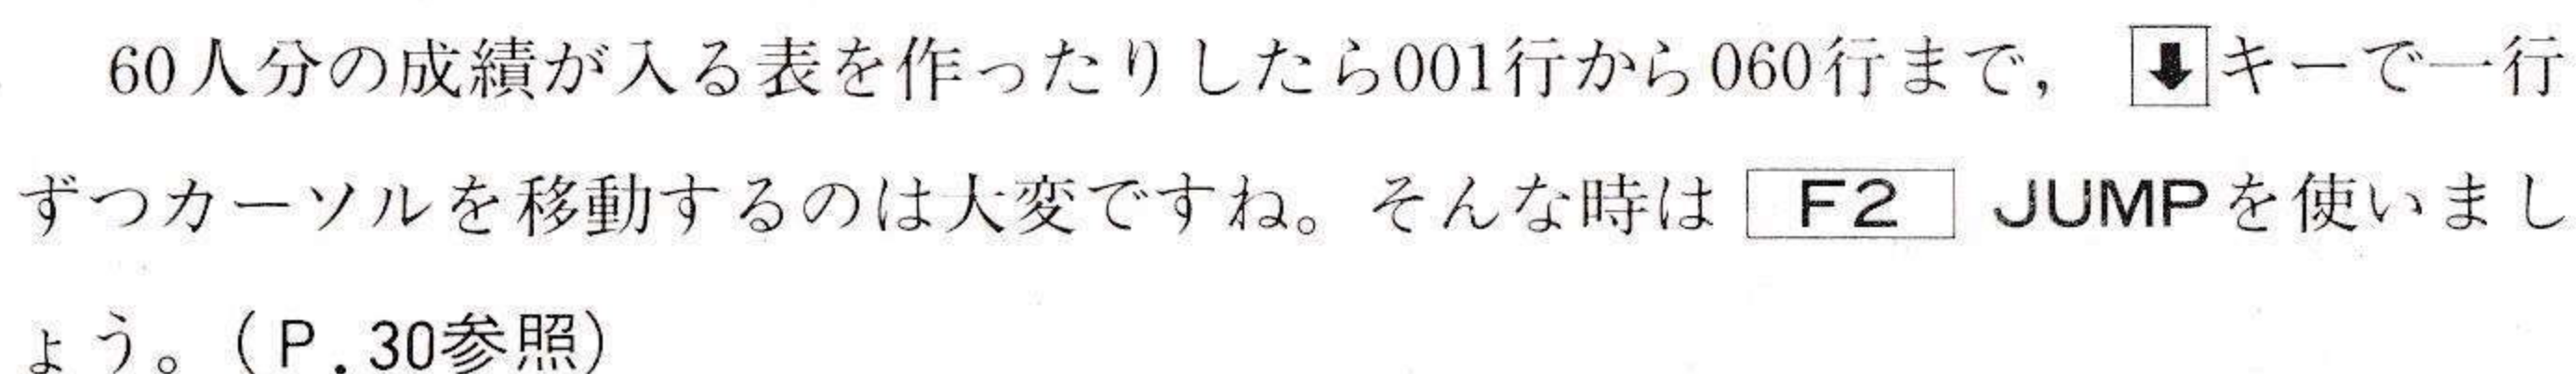 60人分の成績が入る表を作ったりしたら001行から060行まで，⬇キーで一行
ずつカーソルを移動するのは大変ですね。そんな時は F2 JUMPを使いまし
ょう。(P.30参照)